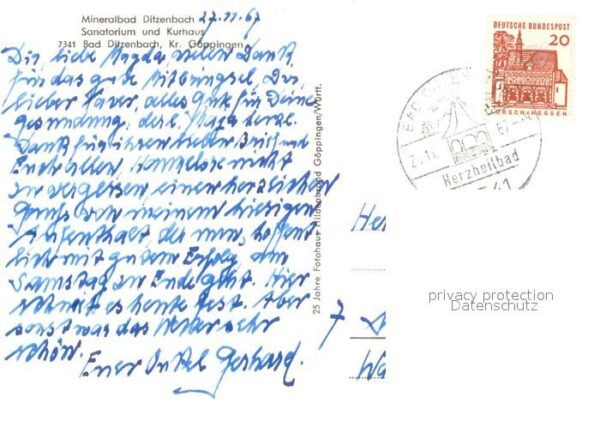 Mineralbad Ditzenbach 27.11.67
Sanatorium und Kurhaus
7341 Bad Ditzenbach, Kr. Göppingen
Dir, liebe Magda vielen Dank
für das gute Mitbringsel, Dir,
lieber Xaver, alles Gute für Deine
Gesundung, Magda
Dank für Ihren lieben Brief und
Euch allen, Hannelore nicht
zu vergessen, einen herzlichen
Gruß von meinem hiesigen
Aufenthalt, der nun, hoffent
lich mit gutem Erfolg, am
Samstag zu Ende geht. Hier
schneit es heute fest. Aber
sonst war das Wetter sehr
schön.
Euer Onkel Gerhard.
25 Jahre Fotohaus Hildenbrand Göppingen/Württ.
DEUTSCHE BUNDESPOST
20
LORSCH/HESSEN
BAD
Herzheilbad
He
7
Wa
privacy protection
Datenschutz